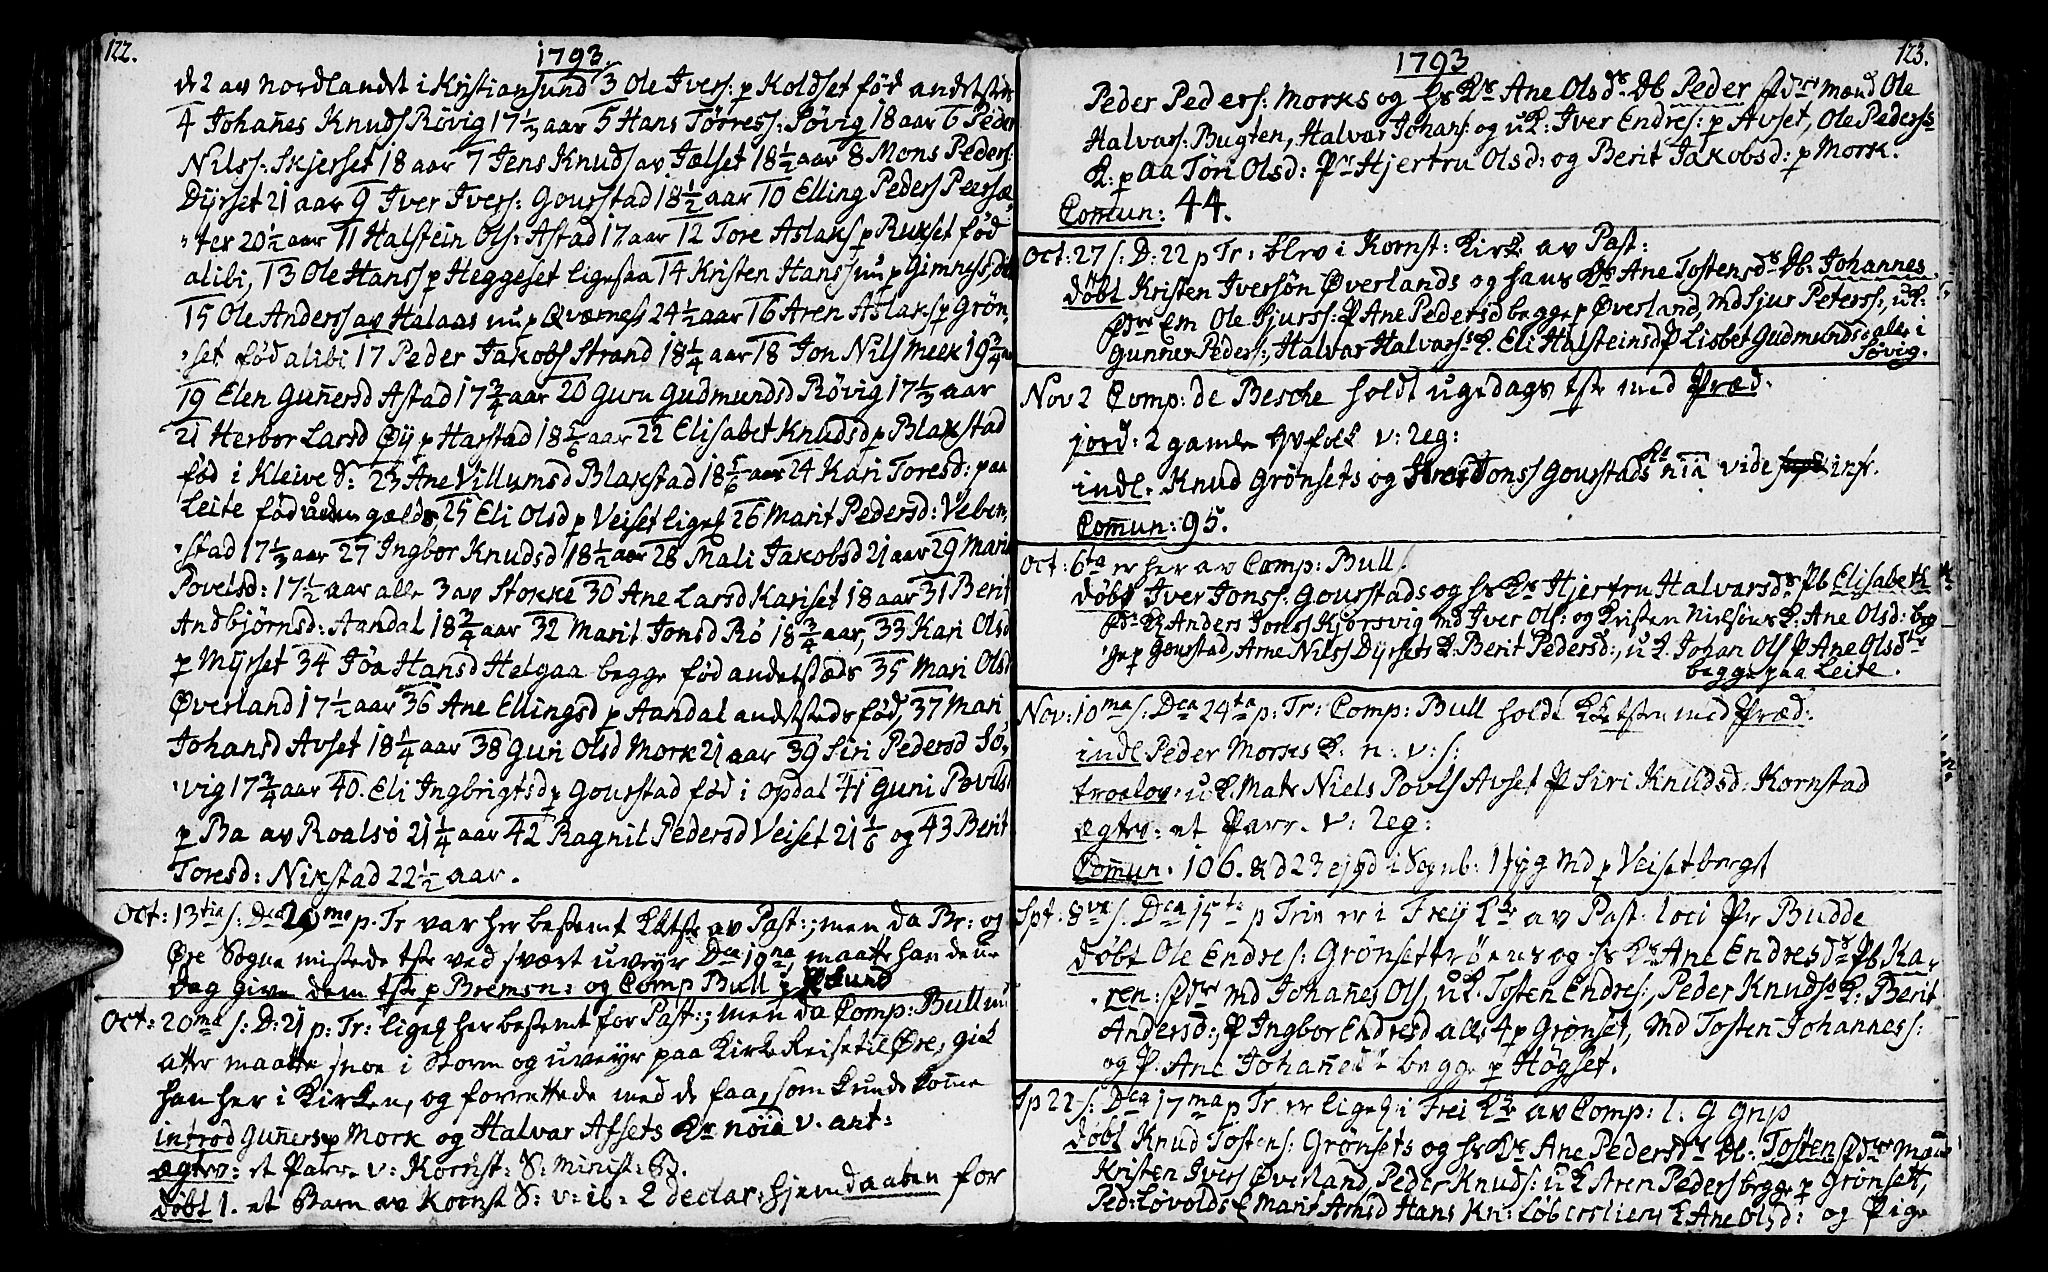 122.
1793.
de 2 av Nordlandet i Kristiansund 3 Ole Ivers: p Koldset fød andetsteds
4 Johañes Knuds Røvig 17 1/3 aar 5 Hans Tørress: Søvig 18 aar 6 Peder
Nilss: Skjerset 18 aar 7 Jens Knuds av Jælset 18 1/2 aar 8 Mons Peders:
Dyrset 21 aar 9 Iver Ivers: Gourstad 18 1/2 aar 10 Elling Peders Peersæ,
"ter 20 1/2 aar 11 Halstein Ols: Astad 17 aar 12 Tore Aslaks p Rukset fød
alibi, 13 Ole Hanss p Heggeset ligesaa 14 Kristen Hanss nu p Gimnes
15 Ole Anderss av Halaas nu p Qværnes 24 1/2 aar 16 Aren Aslaks p Grøn,
"set fød alibi 17 Peder Jakobs Strand 18 1/4 aar 18 Jon Nils Meek 19 3/4
19 Elen Guñersd Astad 17 3/4 aar 20 Guru Gudmundsd Røvig 17 1/3 aar
21 Herbor Larsd Øy p Harstad 18 5/6 aar 22 Elisabet Knudsd p Blakstad
fød i Kleive S: 23 Ane Villumsd Blakstad 18 5/6 aar 24 Kari Toresd: paa
Leite fød uden gælds 25 Eli Olsd p Veiset liges 26 Marit Pedersd: Veben,
"stad 17 1/3 aar 27 Ingbor Knudsd 18 1/2 aar 28 Mali Jakobsd 21 aar 29 Marit
Povelsd: 17 1/2 aar alle 3 av Stokke 30 Ane Larsd Kariset 18 aar 31 Berit
Andbjørnsd: Aandal 18 3/4 aar 32 Marit Jonsd Rø 18 3/4 aar, 33 Kari Olsd
p Myrset 34 Joa Hansd Helgaa begge fød andetsteds 35 Mari Olsd
Øverland 17 1/2 aar 36 Ane Ellingsd p Aandal andetsteds fød, 37 Mari
Johansd Avset 18 1/4 aar 38 Guri Olsd Mork 21 aar 39 Siri Pedersd Sø,
"vig 17 3/4 aar 40. Eli Ingbrigtsd p Gourstad fød i Opdal 41 Guni Povils
p Ba av Roalsø 21 1/4 aar 42 Ragnil Pedersd Veiset 21 1/6 og 43 Berit
Toresd: Nikstad 22 1/2 aar.
Oct: 13tia s: Dca 20ma p. Tr var her bestemt Kktste av Past:; men da Br: og
Øre Sogne mistede tste ved svært uveyr Dca 19na maatte han denne
Dag give dem tste p Bremsn: og Comp Bull p
Oct: 20ma s: D: 21 p: Tr: liges her bestemt for Past:; men da Comp: Bull nu
atter maatte snoe i Storm og uveyr paa Kirke Reise til Øre, gik
han her i Kirken, og forrettede med de faa, som kunde komme
introd Guñers p Mork og Halvar Afsets Kr nöia v. ant:
ægtev: et Parr. v: Kornst: S: minist: B.
døbt 1. et Barn av Kornst S: v: ib: 2 declar: hjemdaaben for
1793
123.
Peder Peders: Morks og hs Ks Ane Olsds Db Peder Fdre mænd Ole
Halvars: Bugten, Halvar Johans: og uk: Iver Endres: p Avset, Ole Peders
K: p aa Tøri Olsd: Pr Hjertru Olsd: og Berit Jakobsd: p Mork.
Comun: 44.
Oct: 27 s: D: 22 p Tr: blev i Kornst: Kirke av Past:
døbt Kristen Iversøn Øverlands og hans Ks Ane Tostensds Db. Johannes
Fdre Em Ole Sjurss: P Ane Pedersd begge p Øverland, Md Sjur Peterss:, uk:
Gunner Peders:, Halvar Halvarss K. Eli Halsteinsd P Lisbet Gudmundsd alle i
Søvig.
Nov 2 Comp: de Besche holdt ugedags tste med Præd.
jord: 2 gamle Hvfolk v: Reg:
indl. Knud Grønsets og Jons Gourstads Kr nia vide infr.
Comun: 95.
Oct: 6ta er her av Comp: Bull.
døbt Iver Jonss: Gourstads og hs Ks Hjertru Halvarsds Pb Elisabeth
Fdr: K Anders Jonss Kjørsvig md Iver Ols: og Kristen Nielsøns K. Ane Olsd: beg
"ge p Gourstad, Arne Nilss Dyrsets K. Berit Pedersd:, uk Johan Ols P Ane Olsd
begge paa Leite.
Nov: 10ma s: Dca 24ta p: Tr: Comp: Bull holdt Kktsten med Præd:
indl Peder Morks K: n: v: s:
troelov: uk. Mats Niels Povls Avset P Siri Knudsd: Kornstad
ægtev: et Parr. v: Reg:
Comun. 106. & d 23 ejsd i Sognb: 1 syg Md p Veisetbergt
Spt: 8va s: Dca 15ta p Trin er i Frey Kke av Past: loci Pr Budde
døbt Ole Endres: Grønsettrøens og hs Ks Ane Endresds Pb Ka,
"ren: Fdre Md Johañes Ols, uk. Tosten Endres:, Peder Knudss K: Berit
Andersd:, P Ingbor Endresd alle 4 p Grønset, Md Tosten Johanness:
og P. Ane Johañesd begge p Høgset.
Sp 22 s: Dca 17ma p Tr. er liges i Frei Kke av Comp: l: G Gnp
døbt Knud Tostens: Grønsets og hs Ks Ane Pedersds Db: Tosten Fdre Mænd
Kristen Ivers Øverland, Peder Knuds: uk Aren Peders begge p Grønsett,
Ped: Løvolds K Marit Arnsd Hans Kn: Løberslien K Ane Olsd: og Pige